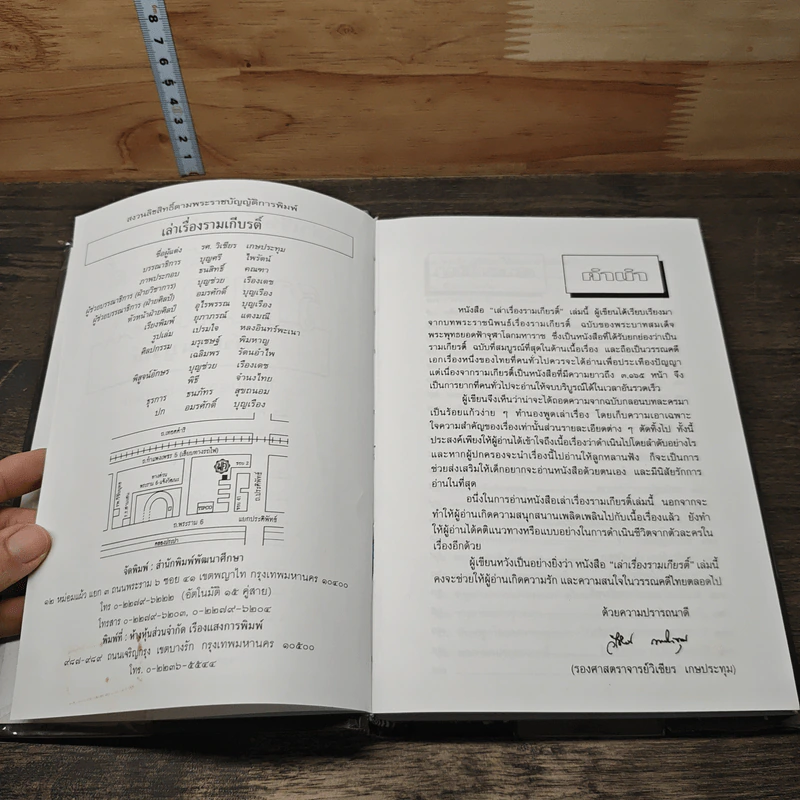 8
7
6
5
4
3
2
1
สงวนลิขสิทธิ์ตามพระราชบัญญัติการพิมพ์
เล่าเรื่องรามเกียรติ์
ชื่อผู้แต่ง รศ. วิเชียร เกษประทุม
บรรณาธิการ บุญศรี ไพรัตน์
ภาพประกอบ ธนสิทธิ์ คณฑา
ผู้ช่วยบรรณาธิการ (ฝ่ายวิชาการ) บุญช่วย เรืองเดช
ผู้ช่วยบรรณาธิการ (ฝ่ายศิลป์) อมรศักดิ์ บุญเรือง
หัวหน้าฝ่ายศิลป์ อุไรพรรณ บุญเรือง
เรียงพิมพ์ ยุภาภรณ์ แดงมณี
รูปเล่ม เปรมใจ หลงอินทร์พะเนา
ศิลปกรรม มรุเชษฐ์ พิมหาญ
เฉลิมพร รัตนอำไพ
พิสูจน์อักษร บุญช่วย เรืองเดช
พิธี จำนงไทย
ธุรการ ธนภัทร สุขถนอม
ปก อมรศักดิ์ บุญเรือง
ถ.เพชรอุทัย
ถ.กำแพงเพชร 5 (เลียบทางรถไฟ)
ทางด่วน
ซอย 2
TISCO
ถ.ประดิพัทธ์
ถ.พระราม 6
แยกประดิพัทธ์
คลองประปา
จัดพิมพ์ : สำนักพิมพ์พัฒนาศึกษา
๑๒ หม่อมแผ้ว แยก ๓ ถนนพระราม ๖ ซอย ๔๑ เขตพญาไท กรุงเทพมหานคร ๑๐๔๐๐
โทร ๐-๒๒๗๙-๖๒๒๒ (อัตโนมัติ ๑๕ คู่สาย)
โทรสาร ๐-๒๒๗๙-๖๒๐๓, ๐-๒๒๗๙-๖๒๐๔
พิมพ์ที่ : ห้างหุ้นส่วนจำกัด เรืองแสงการพิมพ์
๙๘๘-๙๘๙ ถนนเจริญกรุง เขตบางรัก กรุงเทพมหานคร ๑๐๕๐๐
โทร. ๐-๒๒๓๖-๕๕๔๔
คำนำ
หนังสือ "เล่าเรื่องรามเกียรติ์" เล่มนี้ ผู้เขียนได้เรียบเรียงมา
จากบทพระราชนิพนธ์เรื่องรามเกียรติ์ ฉบับของพระบาทสมเด็จ
พระพุทธยอดฟ้าจุฬาโลกมหาราช ซึ่งเป็นหนังสือที่ได้รับยกย่องว่าเป็น
รามเกียรติ์ ฉบับที่สมบูรณ์ที่สุดในด้านเนื้อเรื่อง และถือเป็นวรรณคดี
เอกเรื่องหนึ่งของไทยที่คนทั่วไปควรจะได้อ่านเพื่อประเทืองปัญญา
แต่เนื่องจากรามเกียรติ์เป็นหนังสือที่มีความยาวถึง ๓,๑๖๕ หน้า จึง
เป็นการยากที่คนทั่วไปจะอ่านให้จบบริบูรณ์ได้ในเวลาอันรวดเร็ว
ผู้เขียนจึงเห็นว่าน่าจะได้ถอดความจากฉบับกลอนบทละครมา
เป็นร้อยแก้วง่าย ๆ ทำนองพูดเล่าเรื่อง โดยเก็บความเอาเฉพาะ
ใจความสำคัญของเรื่องเท่านั้นส่วนรายละเอียดต่าง ๆ ตัดทิ้งไป ทั้งนี้
ประสงค์เพียงให้ผู้อ่านได้เข้าใจถึงเนื้อเรื่องว่าดำเนินไปโดยลำดับอย่างไร
และหากผู้ปกครองจะนำเรื่องนี้ไปอ่านให้ลูกหลานฟัง ก็จะเป็นการ
ช่วยส่งเสริมให้เด็กอยากจะอ่านหนังสือด้วยตนเอง และมีนิสัยรักการ
อ่านในที่สุด
อนึ่งในการอ่านหนังสือเล่าเรื่องรามเกียรติ์เล่มนี้ นอกจากจะ
ทำให้ผู้อ่านเกิดความสนุกสนานเพลิดเพลินไปกับเนื้อเรื่องแล้ว ยังทำ
ให้ผู้อ่านได้คติแนวทางหรือแบบอย่างในการดำเนินชีวิตจากตัวละครใน
เรื่องอีกด้วย
ผู้เขียนหวังเป็นอย่างยิ่งว่า หนังสือ "เล่าเรื่องรามเกียรติ์" เล่มนี้
คงจะช่วยให้ผู้อ่านเกิดความรัก และความสนใจในวรรณคดีไทยตลอดไป
ด้วยความปรารถนาดี
(รองศาสตราจารย์วิเชียร เกษประทุม)